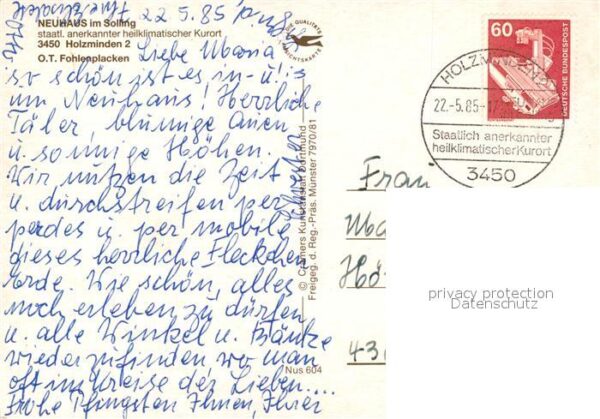 NEUHAUS im Solling
staatl. anerkannter heilklimatischer Kurort
3450 Holzminden 2
O.T. Fohlenplacken
22.5.85
Liebe Maria
so schön ist es in u. 
um Neuhaus! Herrliche
Täler, blumige Auen
u. sonnige Höhen.
Wir nutzen die Zeit
u. durchstreifen per
pedes u. per mobile
dieses herrliche Fleckchen
Erde. Wie schön, alles
noch erleben zu dürfen
u. alle Winkel u. Bänke
wiederzufinden, wo man
oft im Kreise der Lieben....
Frohe Pfingsten Ihnen, Ihrer
Schwester
QUALITÄTS
ANSICHTSKARTE
© Cramers Kunstanstalt Dortmund
Freigeg. d. Reg.-Präs. Münster 7970/81
Nus 604
60
DEUTSCHE BUNDESPOST
HOLZMINDEN
22.-5.85-17
Staatlich anerkannter
heilklimatischer Kurort
3450
Frau
Ma
Hö
43
privacy protection
Datenschutz